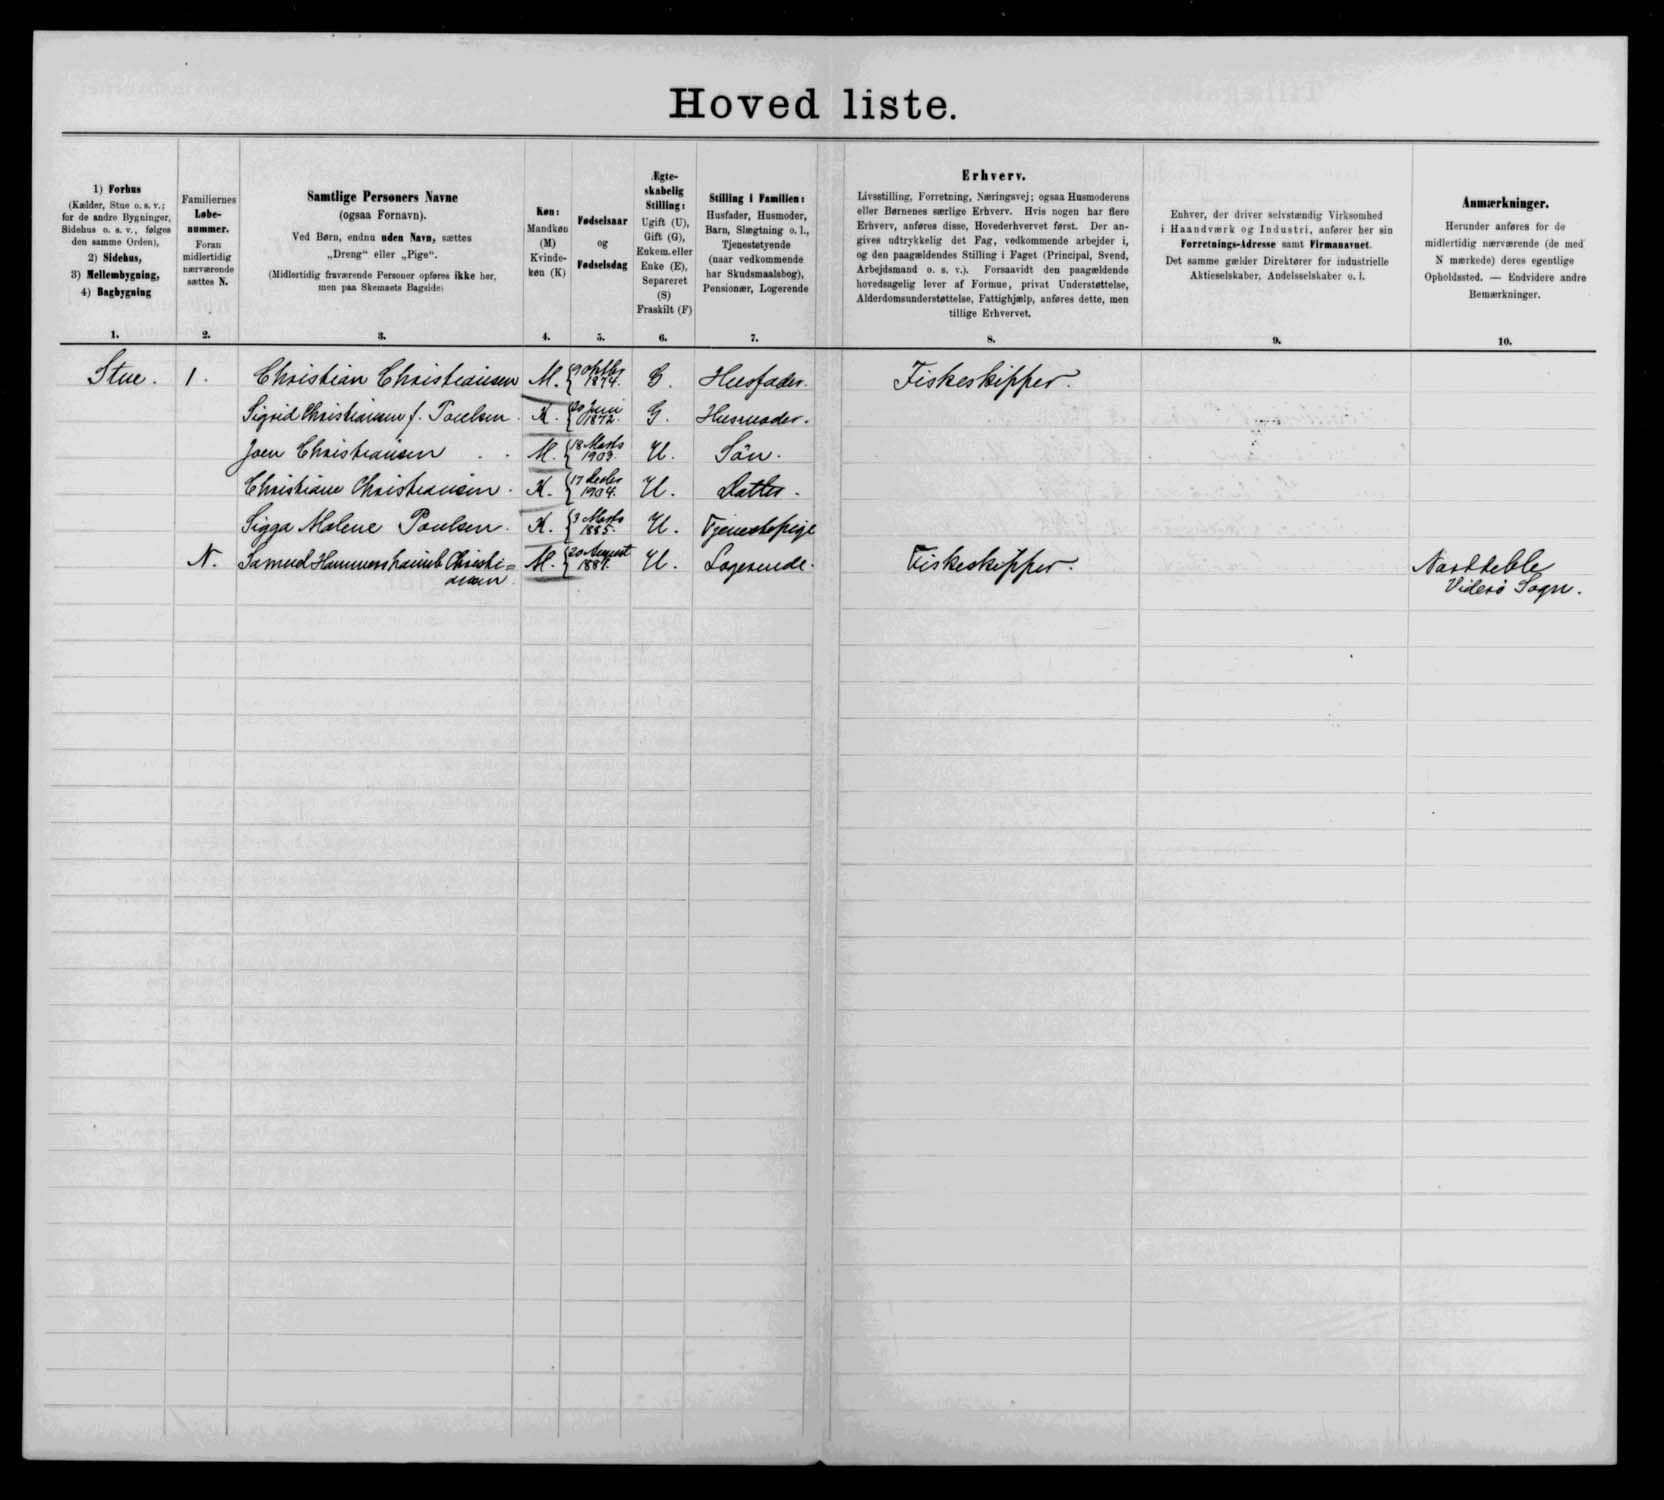 Hoved liste.
1) Forhus
(Kælder, Stue o. s. v.;
for de andre Bygninger,
Sidehus o. s. v., følges
den samme Orden),
2) Sidehus,
3) Mellembygning,
4) Bagbygning
1.
Familiernes
Løbe-
nummer.
Foran
midlertidig
nærværende
sættes N.
2.
Samtlige Personers Navne
(ogsaa Fornavn).
Ved Børn, endnu uden Navn, sættes
„Dreng" eller „Pige".
(Midlertidig fraværende Personer opføres ikke her,
men paa Skemaets Bagside)
3.
Køn:
Mandkøn
(M)
Kvinde-
køn (K)
4.
Fødselsaar
og
Fødselsdag
5.
Ægte-
skabelig
Stilling:
Ugift (U),
Gift (G),
Enkem. eller
Enke (E),
Separeret
(S)
Fraskilt (F)
6.
Stilling i Familien:
Husfader, Husmoder,
Barn, Slægtning o. l.,
Tjenestetyende
(naar vedkommende
har Skudsmaalsbog),
Pensionær, Logerende
7.
Erhverv.
Livsstilling, Forretning, Næringsvej; ogsaa Husmoderens
eller Børnenes særlige Erhverv. Hvis nogen har flere
Erhverv, anføres disse, Hovederhvervet først. Der an-
gives udtrykkelig det Fag, vedkommende arbejder i,
og den paagældendes Stilling i Faget (Principal, Svend,
Arbejdsmand o. s. v.). Forsaavidt den paagældende
hovedsagelig lever af Formue, privat Understøttelse,
Alderdomsunderstøttelse, Fattighjælp, anføres dette, men
tillige Erhvervet.
8.
Enhver, der driver selvstændig Virksomhed
i Haandværk og Industri, anfører her sin
Forretnings-Adresse samt Firmanavnet.
Det samme gælder Direktører for industrielle
Aktieselskaber, Andelsselskaber o. l.
9.
Anmærkninger.
Herunder anføres for de
midlertidig nærværende (de med
N mærkede) deres egentlige
Opholdssted. — Endvidere andre
Bemærkninger.
10.
Stue. 1. Christian Christiansen M. 1874. G. Husfader. Fiskeskipper.
Sigrid Christiansen f. Poulsen. K. 20 Juni 1872. G. Husmoder.
Joen Christiansen . . M. 18 Marts 1903. U. Søn.
Christiane Christiansen. K. 17 1904. U. Datter.
Sigga Malene Poulsen. K. 3 Marts 1885. U. Tjenestepige
N. Samuel Hammershaimb Christi=
ansen. M. 20 August U. Logerende. Fiskeskipper.
Viderø Sogn.